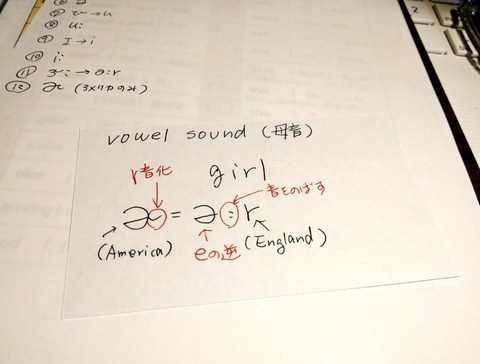 ⑦ ʊ→u
⑧ u:
⑨ I→i
⑩ i:
⑪ ɜ:→ə:r
⑫ ɚ (アメリカのみ)
vowel sound (母音)
r音化 girl
音をのばす
ɚ = ə:r
(America) eの逆 (England)